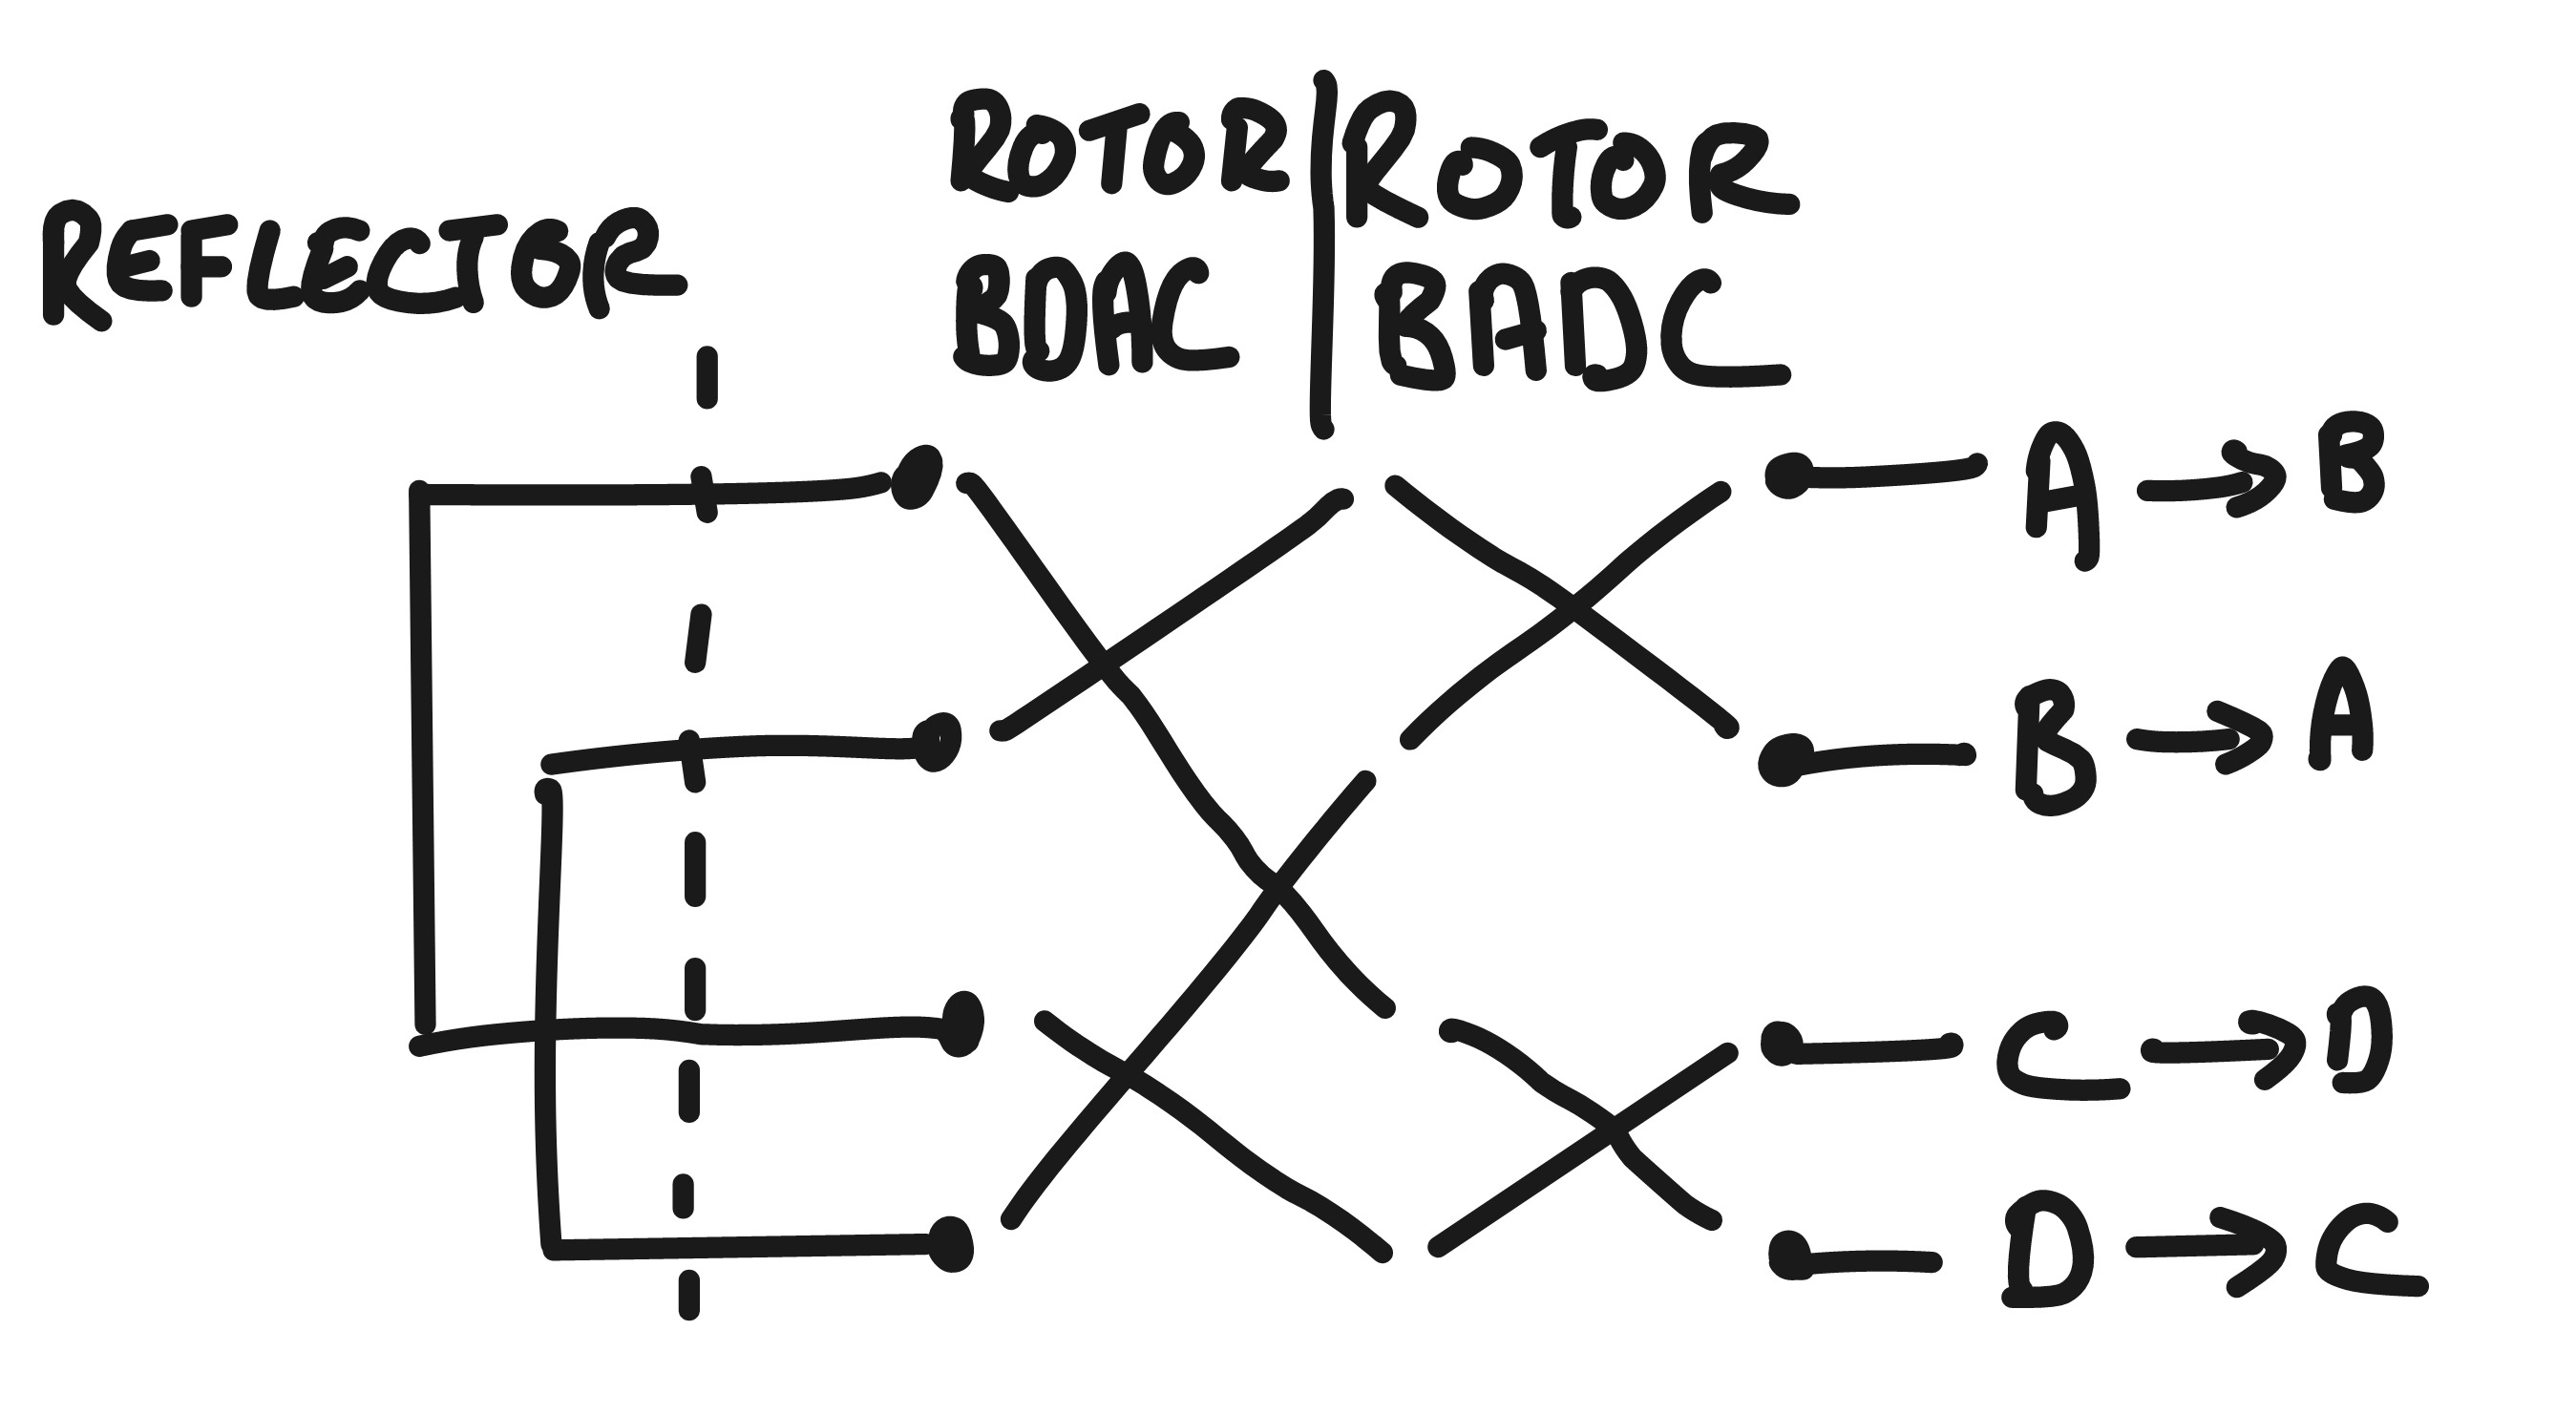 REFLECTOR
ROTOR
BDAC
ROTOR
BADC
A → B
B → A
C → D
D → C